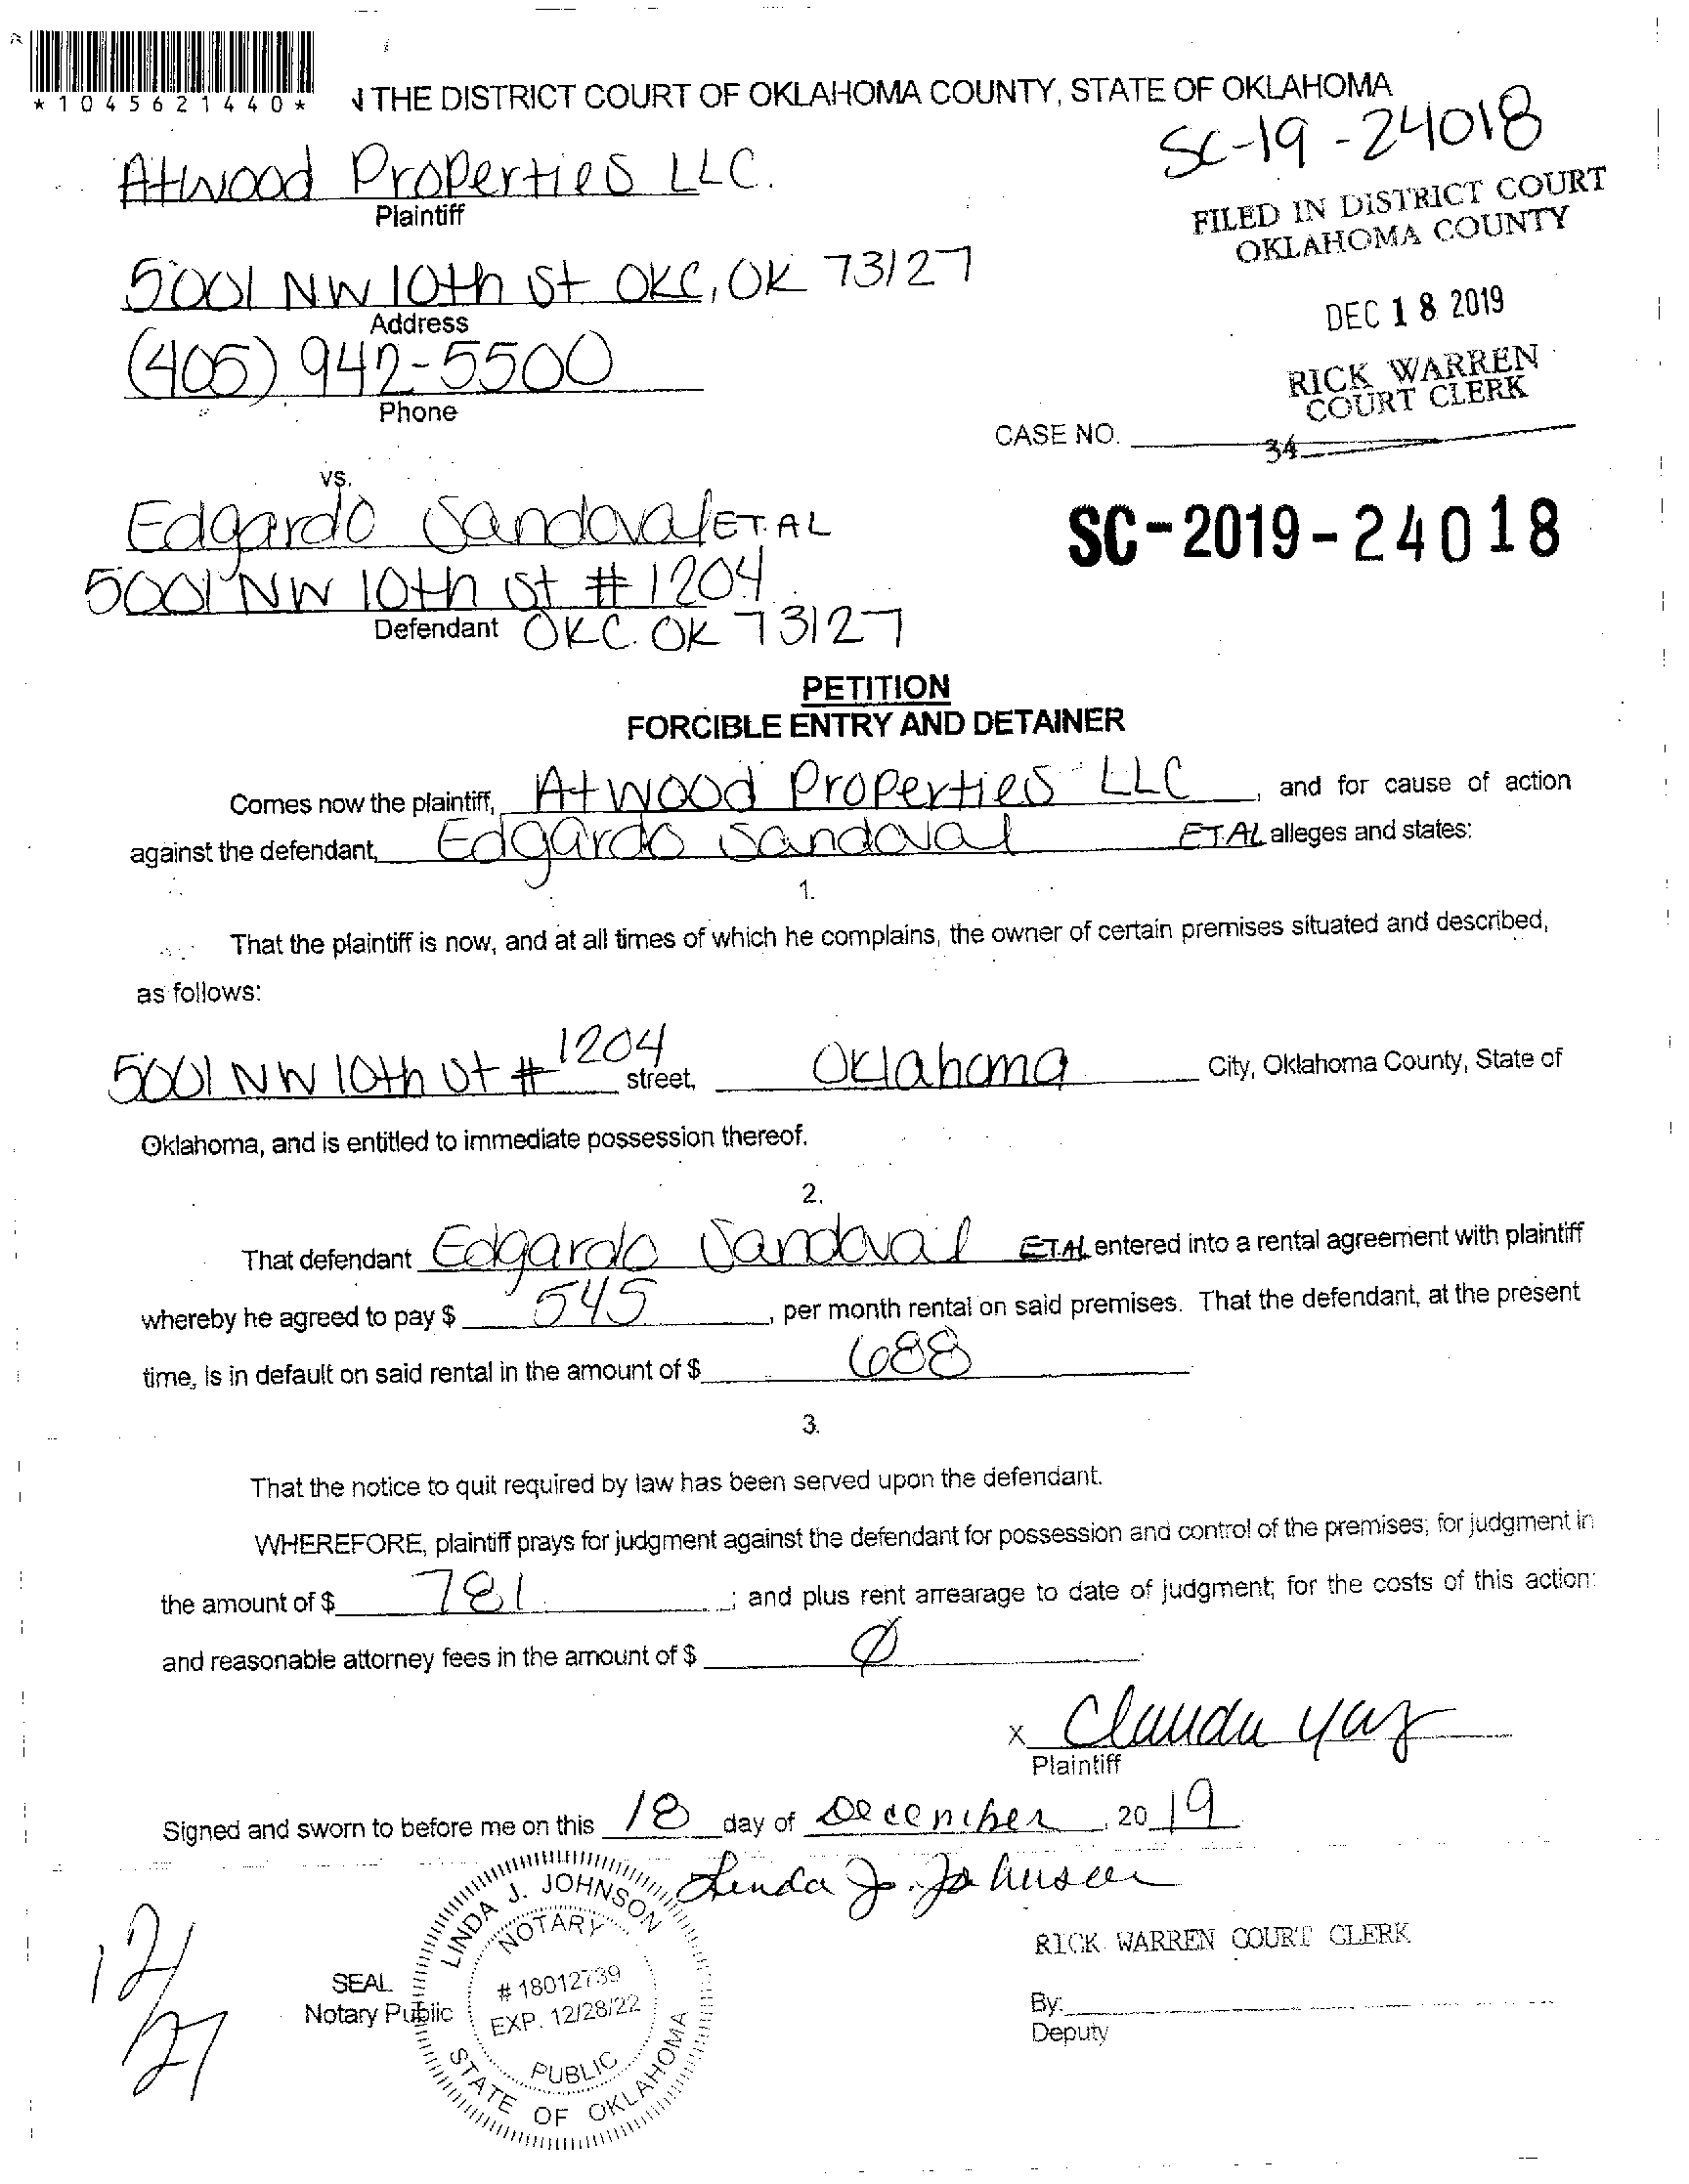 *1045621440*
THE DISTRICT COURT OF OKLAHOMA COUNTY, STATE OF OKLAHOMA
SC-19-24018
Atwood Properties LLC.
Plaintiff
FILED IN DISTRICT COURT
OKLAHOMA COUNTY
5001 NW 10th St OKC, OK 73127
Address
DEC 18 2019
(405) 942-5500
Phone
RICK WARREN
COURT CLERK
CASE NO.
34
vs.
Edgardo Sandoval ET.AL
SC-2019-24018
5001 NW 10th St # 1204
Defendant OKC. OK 73127
PETITION
FORCIBLE ENTRY AND DETAINER
Comes now the plaintiff, Atwood Properties LLC, and for cause of action
against the defendant, Edgardo Sandoval ET.AL alleges and states:
1.
That the plaintiff is now, and at all times of which he complains, the owner of certain premises situated and described,
as follows:
5001 NW 10th St # 1204 street, Oklahoma City, Oklahoma County, State of
Oklahoma, and is entitled to immediate possession thereof.
2.
That defendant Edgardo Sandoval ET.AL entered into a rental agreement with plaintiff
whereby he agreed to pay $ 545, per month rental on said premises. That the defendant, at the present
time, is in default on said rental in the amount of $ 688
3.
That the notice to quit required by law has been served upon the defendant.
WHEREFORE, plaintiff prays for judgment against the defendant for possession and control of the premises; for judgment in
the amount of $ 781; and plus rent arrearage to date of judgment; for the costs of this action:
and reasonable attorney fees in the amount of $ Ø
x Claudia
Plaintiff
Signed and sworn to before me on this 18 day of December, 2019
Linda J. Johnson
LINDA J. JOHNSON
NOTARY
# 18012739
EXP. 12/28/22
PUBLIC
STATE OF OKLAHOMA
SEAL
Notary Public
RICK WARREN COURT CLERK
By:
Deputy
12/
27